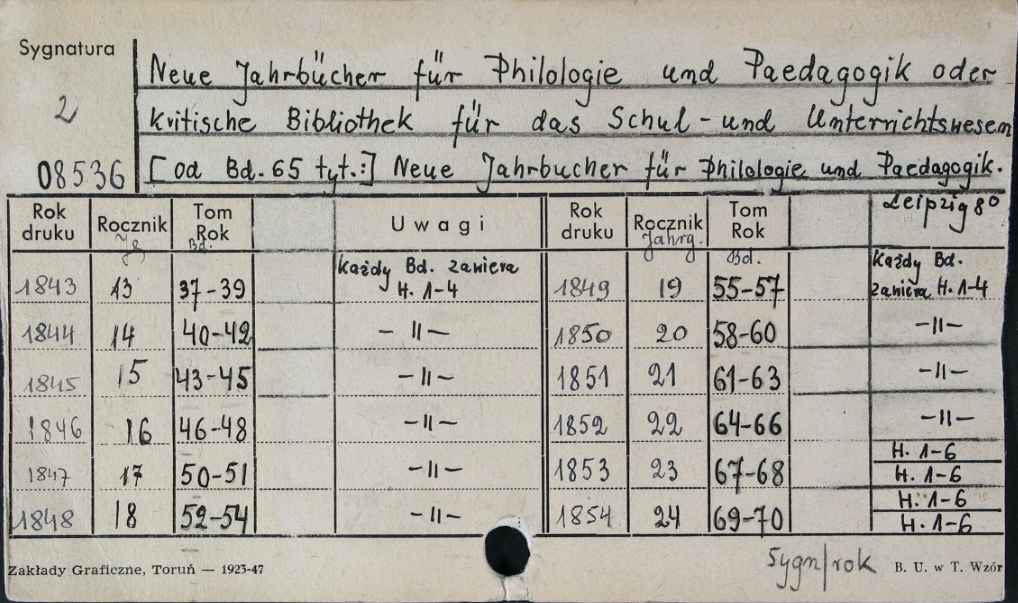 Sygnatura
2
08536
Neue Jahrbücher für Philologie und Paedagogik oder
kritische Bibliothek für das Schul-und Unterrichtswesen
[od Bd. 65 tyt.:] Neue Jahrbucher für Philologie und Paedagogik.
Leipzig 8⁰
Rok druku Rocznik Jg Tom Rok Bd. Uwagi Rok druku Rocznik Jahrg. Tom Rok Bd.
1843 13 37-39 Każdy Bd. zawiera H. 1-4 1849 19 55-57 Każdy Bd. zawiera H. 1-4
1844 14 40-42 -II- 1850 20 58-60 -II-
1845 15 43-45 -II- 1851 21 61-63 -II-
1846 16 46-48 -II- 1852 22 64-66 -II-
1847 17 50-51 -II- 1853 23 67-68 H. 1-6 H. 1-6
1848 18 52-54 -II- 1854 24 69-70 H. 1-6 H. 1-6
Zakłady Graficzne, Toruń — 1923-47 Sygn/rok B. U. w T. Wzór